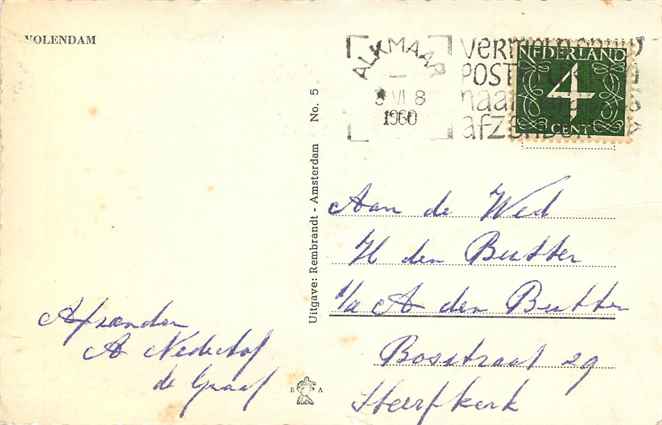 VOLENDAM
ALKMAAR
VI 8
1960
POST
naar
afzender
NEDERLAND
4
CENT
Uitgave: Rembrandt - Amsterdam No. 5
Aan de Wed
H den Butter
p/a A den Butter
Bosstraat 29
Heerfkerk
Afzender
A
de Graaf
R A